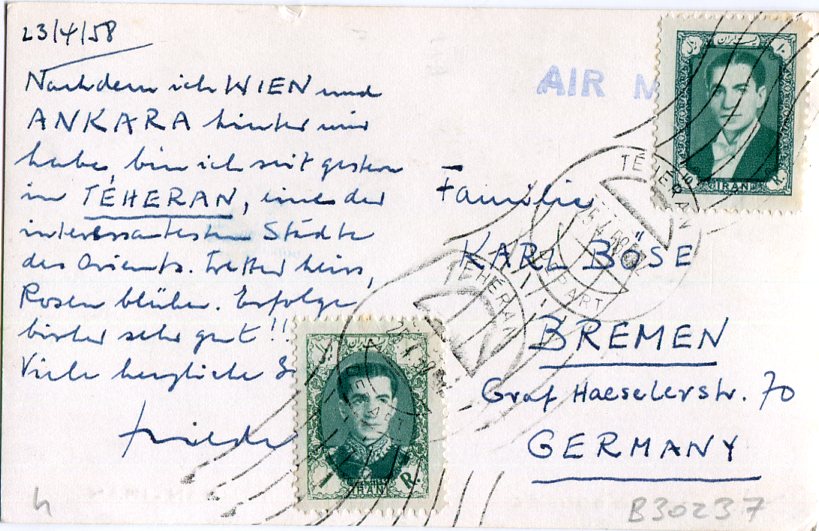 23/4/58
Nachdem ich WIEN und
ANKARA hinter mir
habe, bin ich seit gestern
in TÉHERAN, eines der
interessantesten Städte
des Orients. Wetter heiss,
Rosen blühen. Erfolge
bisher sehr gut!!
Viele herzliche
AIR M
Familie
KARL BÖSE
BREMEN
Graf Haeselerstr. 70
GERMANY
TÉHÉRAN
DÉPART
IRAN
TÉHÉRAN
1 R.
IRAN
h
B30237